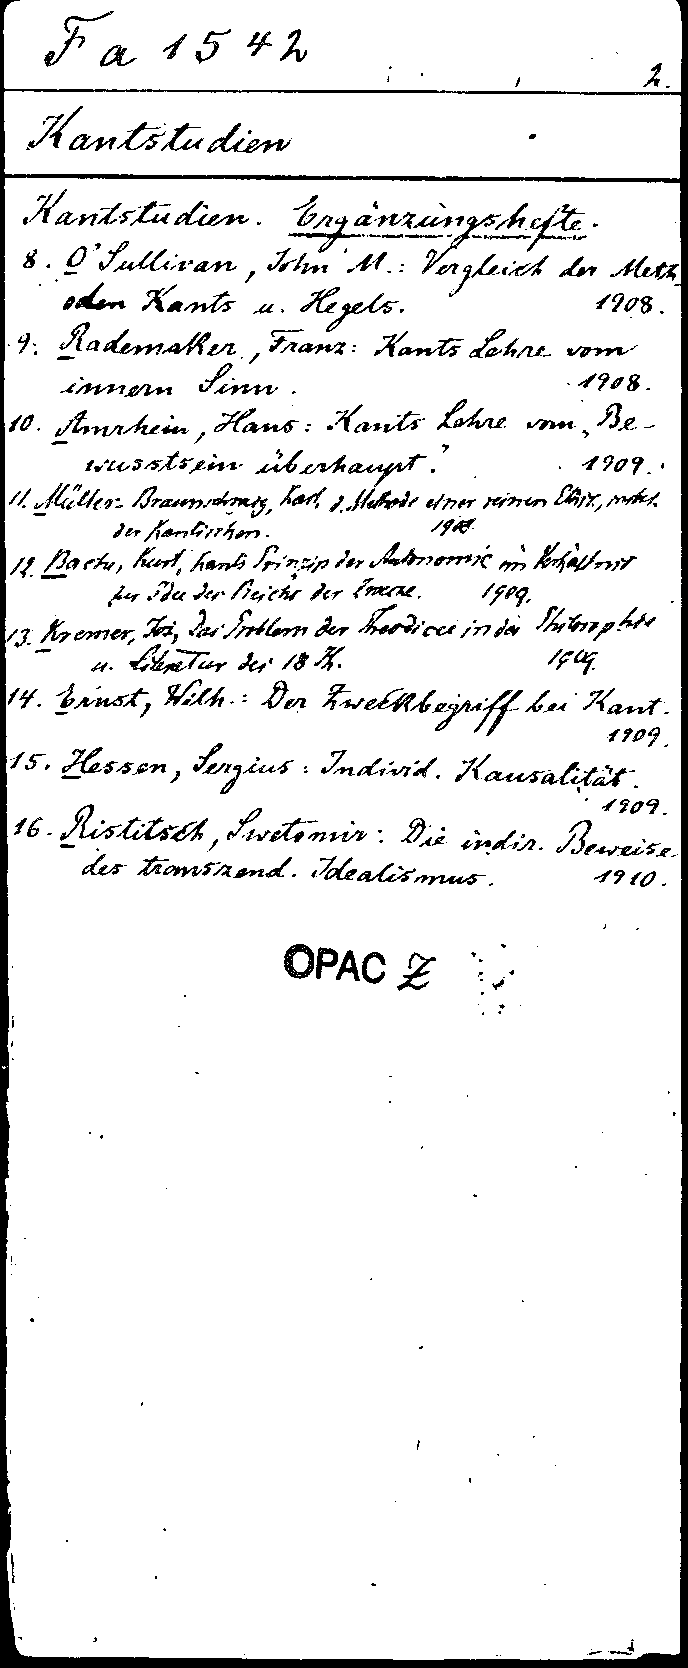 Fa 1542
2.
Kantstudien
Kantstudien. Ergänzungshefte.
8. O'Sullivan, John M.: Vergleich der Meth-
oden Kants u. Hegels. 1908.
9. Rademaker, Franz: Kants Lehre vom
innern Sinn. 1908.
10. Amrhein, Hans: Kants Lehre vom „Be-
wusstsein überhaupt." 1909.
11. Müller-Braunschweig, Karl, d. Methode einer reinen Ethik,
der Kantischen. 1908.
12. Bache, Kurt, Kants Prinzip der Autonomie im Verhältnis
zur Idee des Reichs der Zwecke. 1909.
13. Kremer, Jos, Das Problem der Theodicee in der Philosophie
u. Literatur des 18 Jh. 1909.
14. Ernst, Wilh.: Der Zweckbegriff bei Kant.
1909.
15. Hessen, Sergius: Individ. Kausalität.
1909.
16. Ristitsch, Swetomir: Die indir. Beweise
des transzend. Idealismus. 1910.
OPAC Z